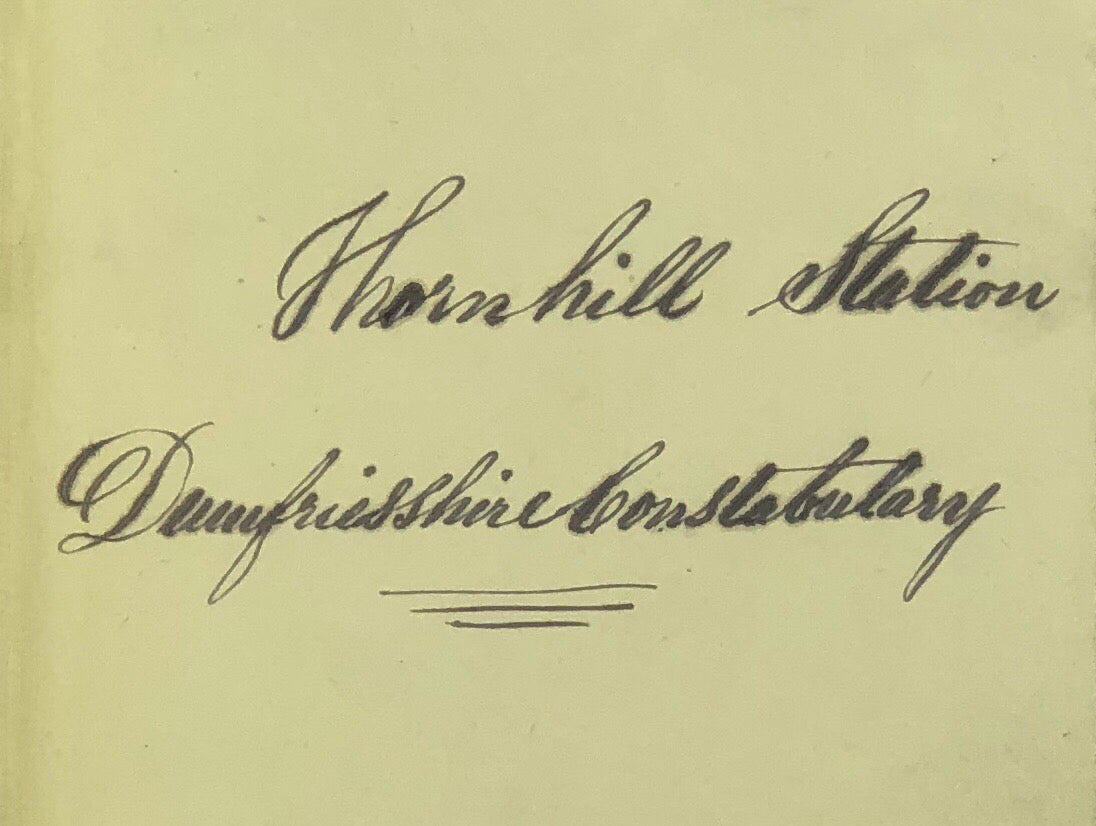 Thornhill Station
Dumfriesshire Constabulary